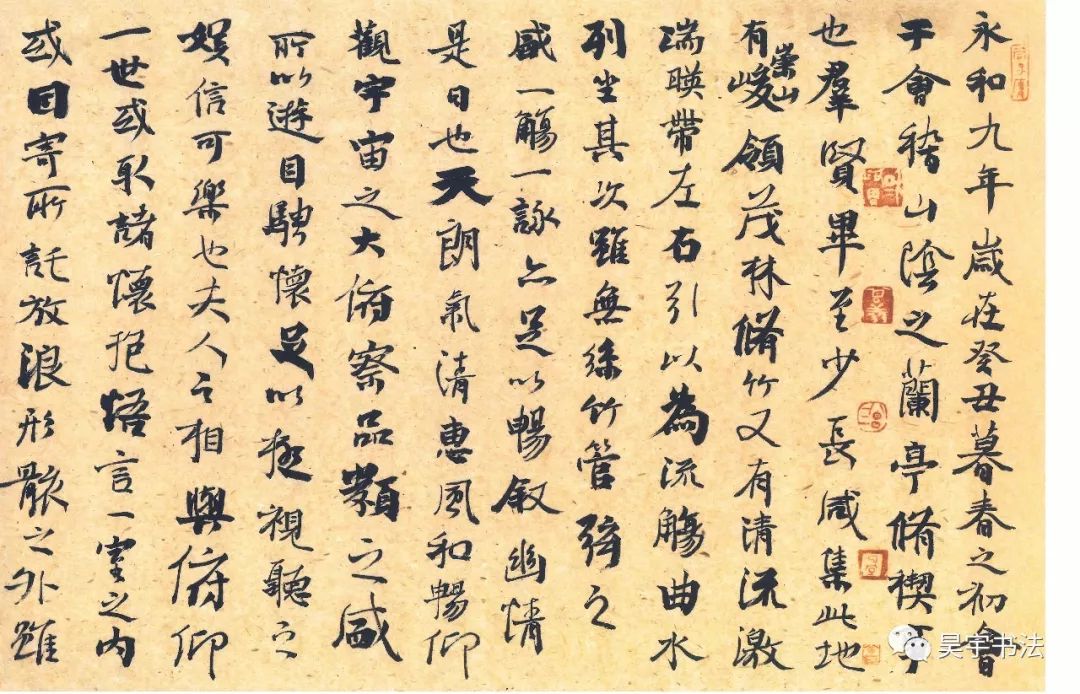 永和九年歲在癸丑暮春之初會
于會稽山陰之蘭亭脩禊事
也羣賢畢至少長咸集此地
有崇山峻領茂林脩竹又有清流激
湍暎帶左右引以為流觴曲水
列坐其次雖無絲竹管弦之
盛一觴一詠亦足以暢叙幽情
是日也天朗氣清惠風和暢仰
觀宇宙之大俯察品類之盛
所以遊目騁懷足以極視聽之
娛信可樂也夫人之相與俯仰
一世或取諸懷抱悟言一室之內
或因寄所託放浪形骸之外雖
昊宇书法